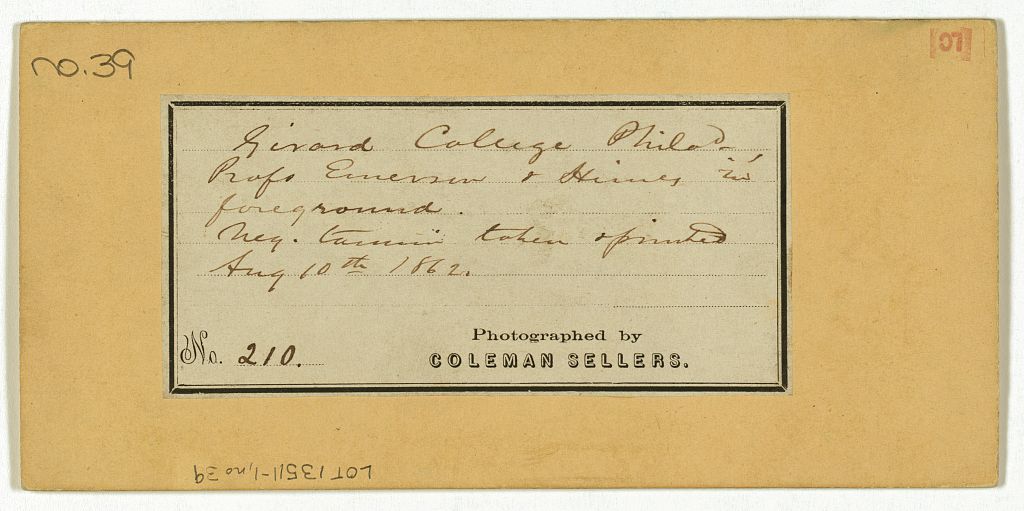 no. 39
LC
Girard College Philad.
Profs Emerson & Himes in
foreground.
Neg. tannin taken & printed
Aug 10th 1862.
No. 210.
Photographed by
COLEMAN SELLERS.
LOT 13511-1, no 39